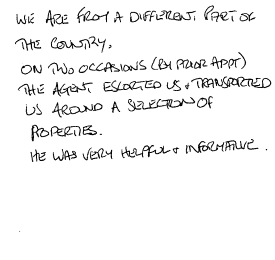 WE ARE FROM A DIFFERENT PART OF
THE COUNTRY.
ON TWO OCCASIONS (BY PRIOR APPT)
THE AGENT ESCORTED US & TRANSPORTED
US AROUND A SELECTION OF
PROPERTIES.
HE WAS VERY HELPFUL & INFORMATIVE.